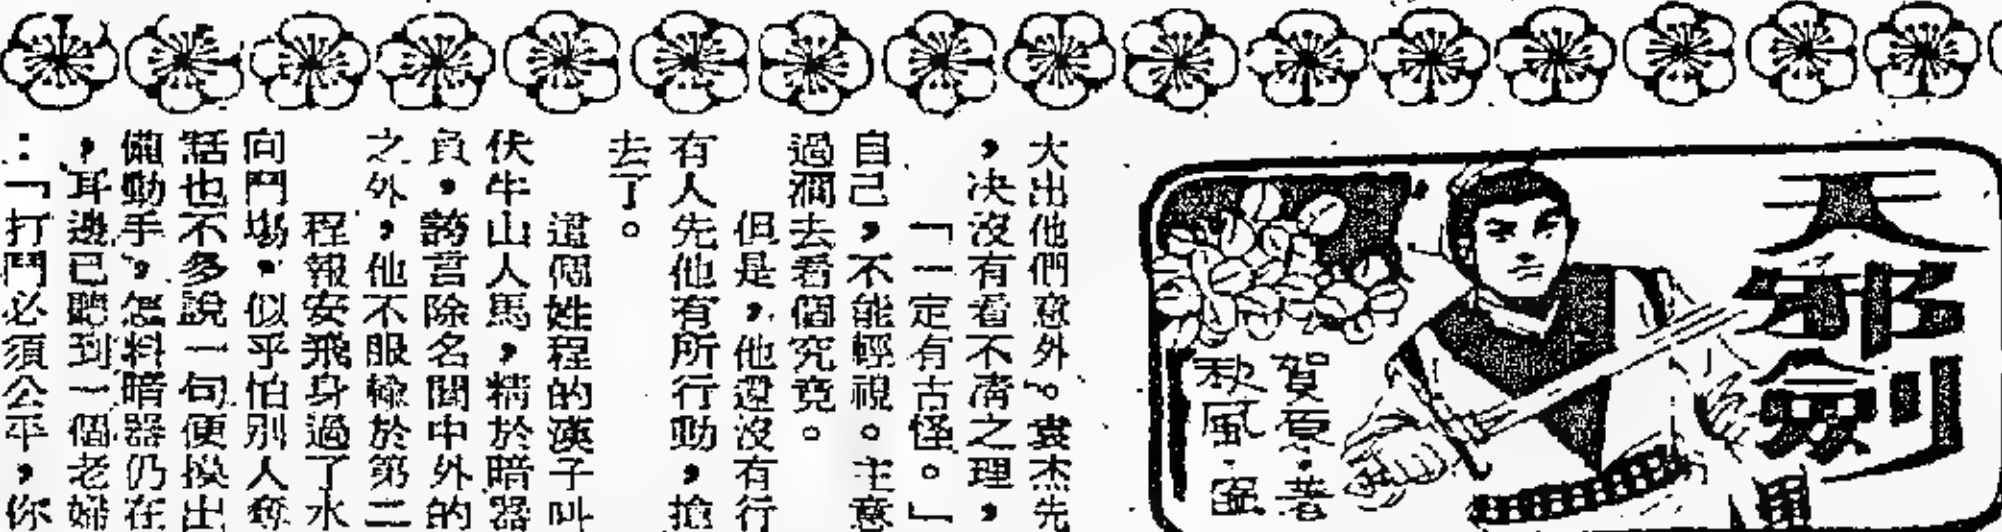 天邪劍
賀夏·著
秋風·圖
大出他們意外。袁杰先
，决沒有看不清之理，
「一定有古怪。」
自己，不能輕視。主意
過澗去看個究竟。
但是，他還沒有行
有人先他有所行動，搶
去了。
這個姓程的漢子叫
伏牛山人馬，精於暗器
負，誇言除名閩中外的
之外，他不服輸於第二
程報安飛身過了水
向鬥場，似乎怕別人奪
話也不多說一句便換出
備動手，怎料暗器仍在
，耳邊已聽到一個老婦
：「打鬥必須公平，你